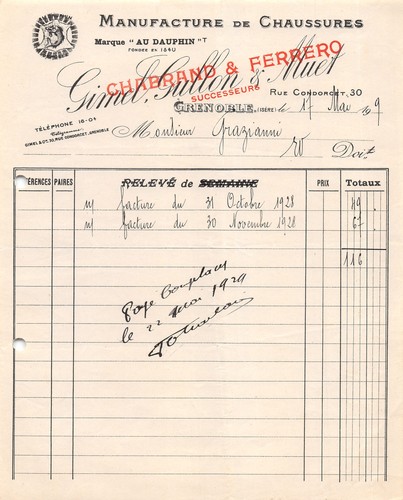 MANUFACTURE DE CHAUSSURES
Marque "AU DAUPHIN"
FONDÉE EN 1840
Gimel, Gullon & Muet
CHABRAND & FERRERO
SUCCESSEURS
RUE CONDORCET, 30
GRENOBLE, (ISÈRE) le 17 Mai 1929
TÉLÉPHONE 18-04
Télégramme:
GIMEL & Cie, 30, RUE CONDORCET, GRENOBLE
Monsieur Grazianni
Doit
RÉFÉRENCES PAIRES RELEVÉ de SEMAINE PRIX Totaux
n/ facture du 31 Octobre 1928 49
n/ facture du 30 Novembre 1928 67
116
le 22 Mai 1929